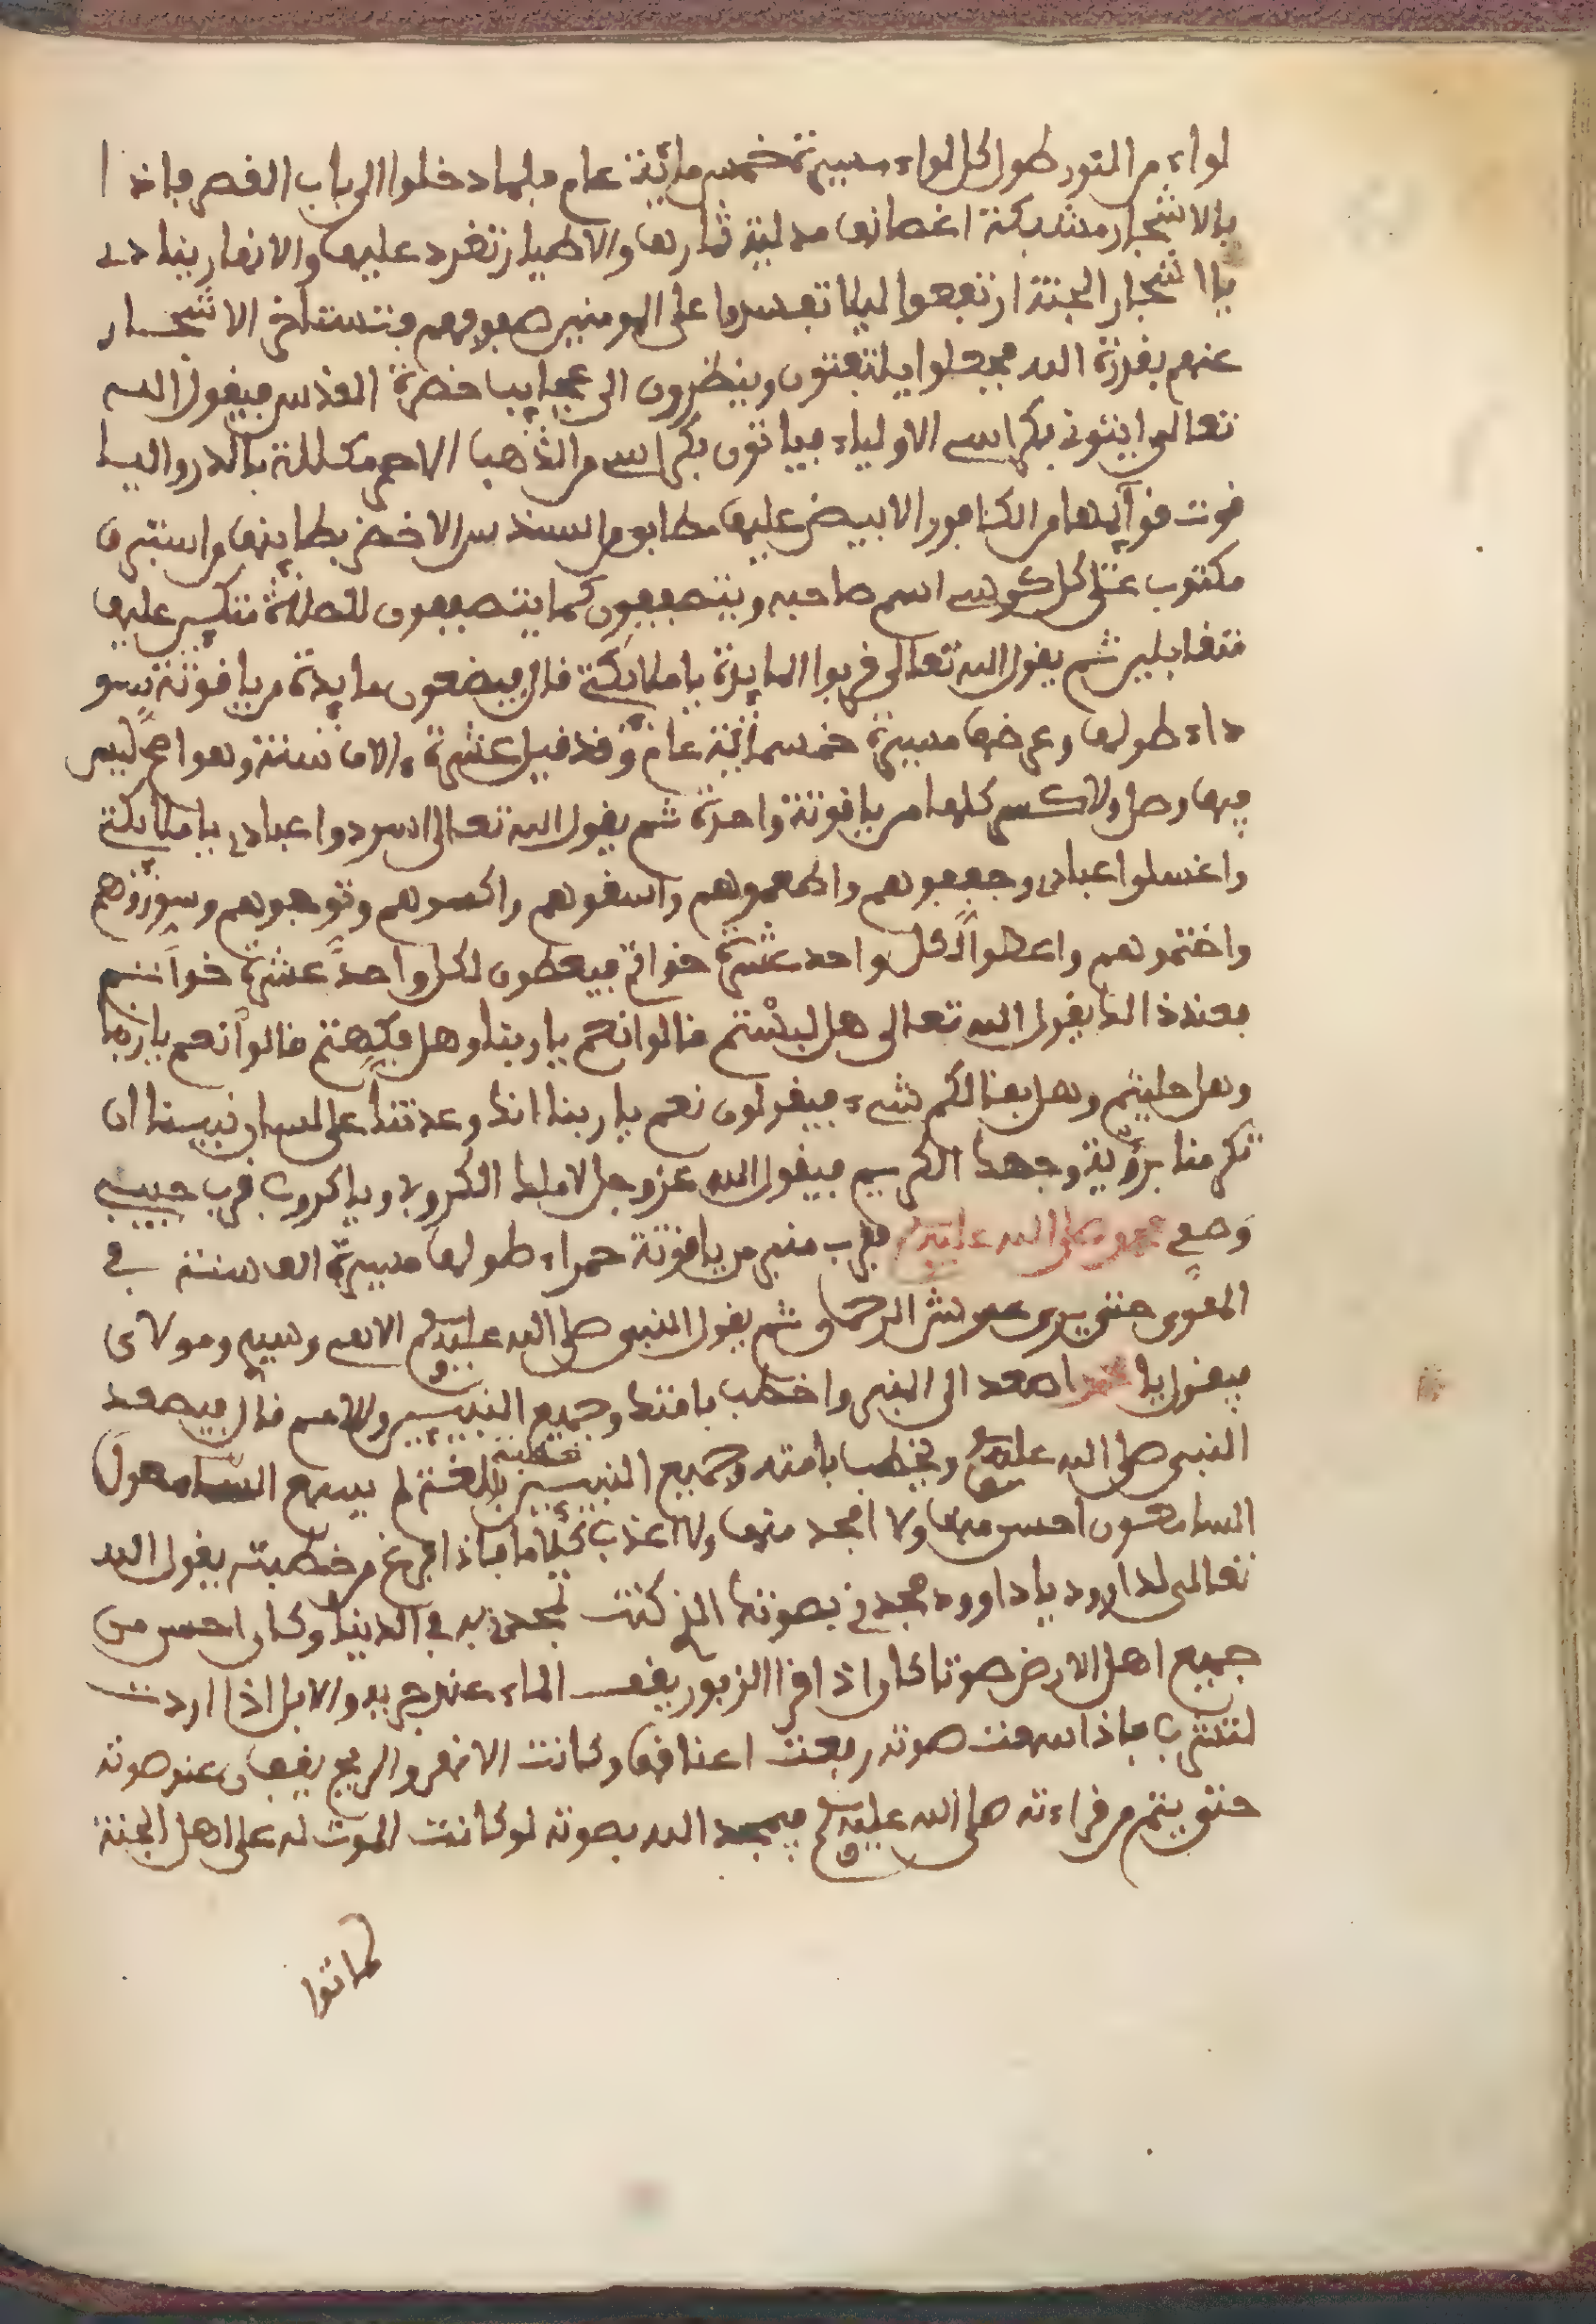 لواء من النور طول كل لواء مسيرة خمس مائة عام فلما دخلوا الى باب القصر فاذ ا
بالاشجار مشتبكة اغصانها مدلية ثمارها والاطيار تغرد عليها والانهار ينادى
يا اشجار الجنة ارتفعوا ليلا تفسدوا على المومنين صفوفهم فتستاخر الاشجار
عنهم بقدرة الله فجعلوا يلتفتون وينظرون الى عجايب حضرة القدس فيقول الله
تعالى ايتونى بكراسى الاولياء فياتون بكراسى من الذهب الاحمر مكللة بالدر واليا
قوت قوايمها من الكافور الابيض عليها مطابو من السندس الاخضر بطاينها من استبرق
مكتوب على كل كرسى اسم صاحبه ويتصففون كما يتصففون للصلاة متكين عليها
متقابلين ثم يقول الله تعالى قربوا المايدة يا ملائكتى قال فيضعون مايدة من ياقوتة سو
داء طولها وعرضها مسيرة خمسمائة عام وقد قيل عشرة ءالاف سنة وهو اصح ليس
فيها وصل ولا كسر كلها من ياقوتة واحدة ثم يقول الله تعالى اسردوا عبادى يا ملائكتى
واغسلوا عبادى وجففوهم واطعموهم واسقوهم واكسوهم وتوجوهم وسوروهم
واختموهم واعطوا لكل واحد عشرة خواتم فيعطون لكل واحد عشرة خواتم
فعند ذالك يقول الله تعالى هل لبستم قالوا نعم يا ربنا وهل فكهتم قالوا نعم يا ربنا
وهل حليتم وهل بقا لكم شىء فيقولون نعم يا ربنا انك وعدتنا على لسان نبينا ان
تكرمنا برؤية وجهك الكريم فيقول الله عز وجل لاملاك الكروبى ويا كروب قرب حبيبى
وصفى محمد صلى الله عليه وسلم فيقرب منبر من ياقوتة حمراء طولها مسيرة الف سنة فى
الهوى حتى يرى عرش الرحمان ثم يقول النبى صلى الله عليه وسلم الاهى وسيدى ومولاى
فيقول يا محمد اصعد الى المنبر واخطب بامتك وجميع النبيين والامم قال فيصعد
النبى صلى الله عليه وسلم ويخطب بامته وجميع النبيين خطبة بليغة لم يسمع السامعون
السامعون احسن منها ولا امجد منها ولا اعذب كلاما فاذا فرغ من خطبته يقول الله
تعالى لداوود يا داوود مجدنى بصوتك الذى كنت تمجدنى به فى الدنيا وكان احسن من
جميع اهل الارض صوتا كان اذا قرا الزبور يقف الماء عند جريه والابل اذا اردت
لتشرب فاذا سمعت صوته رفعت اعناقها وكانت الانهر والريح يقفان عند صوته
حتى يتم من قراءته صلى الله عليه وسلم فيمجد الله بصوته لو كانت الموت له على اهل الجنة
لماتوا